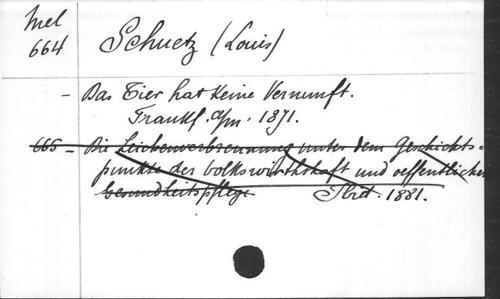 Mel
664 Schuetz (Louis)
- Das Tier hat keine Vernunft.
Frankf. a/m. 1871.
665 - Die Leichenverbrennung unter dem Geschichts=
punkte der Volkswirthshaft und oeffentlicher
Gesundheitspflege Ibid. 1881.